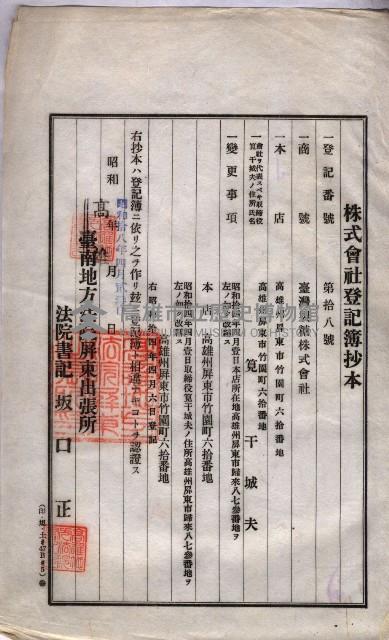 株式會社登記簿抄本
一登記番號 第拾八號
一商號 臺灣 糖株式會社
一本店 高雄州屏東市竹園町六拾番地
一會社ヲ代表スベキ取締役
筧干城夫ノ住所氏名
高雄州屏東市竹園町六拾番地
筧干城夫
一變更事項
昭和拾四年四月壹日本店所在地高雄州屏東市歸來八七參番地ヲ
左ノ如ク改稱ス
本店 高雄州屏東市竹園町六拾番地
昭和拾四年四月壹日取締役筧干城夫ノ住所高雄州屏東市歸來八七參番地ヲ
左ノ如ク改稱ス
高雄州屏東市竹園町六拾番地
右昭和拾四年四月六日登記
右抄本ハ登記簿ニ依リ之ヲ作リ茲ニ登記簿ト相違ナキコトヲ認證ス
昭和 年 月 日
昭和拾八年四月貳
高雄
臺南地方法院屏東出張所
法院書記 坂口正
高雄市立歷史博物館